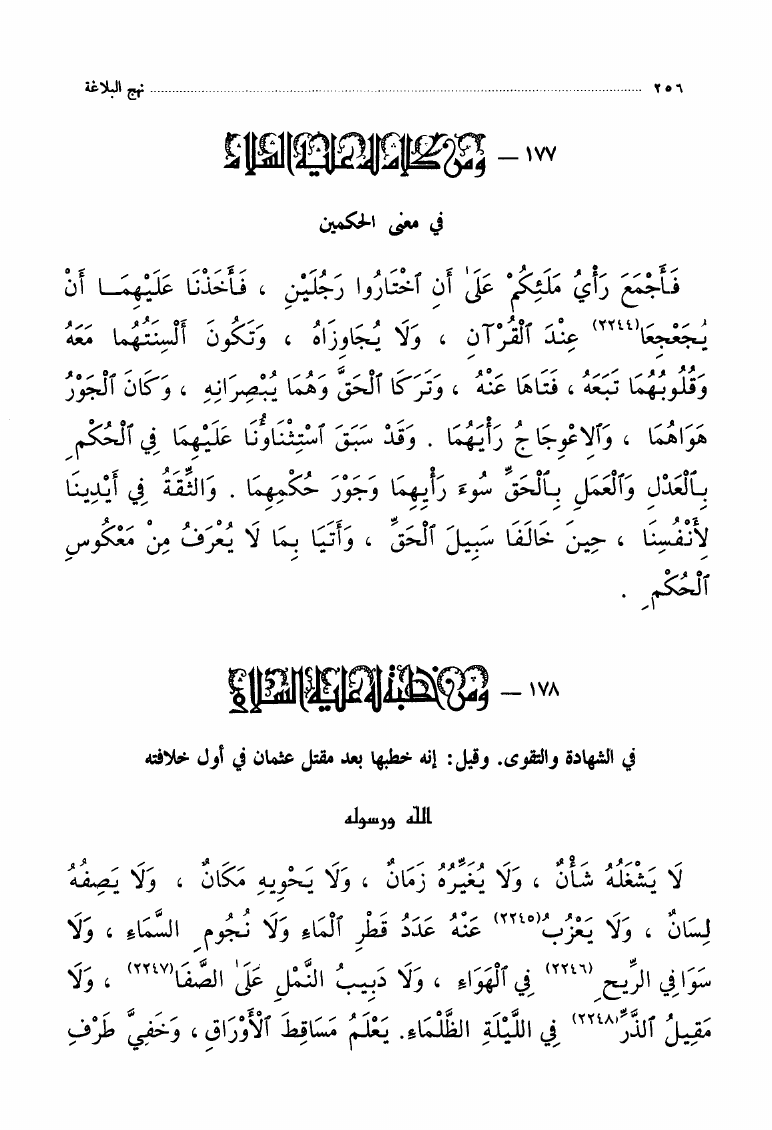 ٢٥٦ ........ نهج البلاغة
١٧٧ – ومن كلام له عليه السلام
في معنى الحكمين
فَأَجْمَعَ رَأْيُ مَلَئِكُمْ عَلَىٰ أَنِ ٱخْتَارُوا رَجُلَيْنِ ، فَأَخَذْنَا عَلَيْهِمَا أَنْ
يُجَعْجِعَا(٢٢٤٤) عِنْدَ ٱلْقُرْآنِ ، وَلَا يُجَاوِزَاهُ ، وَتَكُونَ أَلْسِنَتُهُما مَعَهُ
وَقُلُوبُهُمَا تَبَعَهُ ، فَتَاهَا عَنْهُ ، وَتَرَكَا ٱلْحَقَّ وَهُمَا يُبْصِرَانِهِ ، وَكَانَ ٱلْجَوْرُ
هَوَاهُمَا ، وَٱلِاعْوِجَاجُ رَأْيَهُمَا . وَقَدْ سَبَقَ ٱسْتِثْنَاؤُنَا عَلَيْهِمَا فِي ٱلْحُكْمِ
بِٱلْعَدْلِ وَٱلْعَمَلِ بِٱلْحَقِّ سُوءَ رَأْيِهِمَا وَجَوْرَ حُكْمِهِمَا . وَالثِّقَةُ فِي أَيْدِينَا
لِأَنْفُسِنَا ، حِينَ خَالَفَا سَبِيلَ ٱلْحَقِّ ، وَأَتَيَا بِمَا لَا يُعْرَفُ مِنْ مَعْكُوسِ
ٱلْحُكْمِ .
١٧٨ – ومن خطبة له عليه السلام
في الشهادة والتقوى. وقيل: إنه خطبها بعد مقتل عثمان في أول خلافته
الله ورسوله
لَا يَشْغَلُهُ شَأْنٌ ، وَلَا يُغَيِّرُهُ زَمَانٌ ، وَلَا يَحْوِيهِ مَكَانٌ ، وَلَا يَصِفُهُ
لِسَانٌ ، وَلَا يَعْزُبُ(٢٢٤٥) عَنْهُ عَدَدُ قَطْرِ ٱلْمَاءِ وَلَا نُجُومِ السَّمَاءِ ، وَلَا
سَوَافِي الرِّيحِ(٢٢٤٦) فِي ٱلْهَوَاءِ ، وَلَا دَبِيبُ النَّمْلِ عَلَىٰ الصَّفَا(٢٢٤٧) ، وَلَا
مَقِيلُ ٱلذَّرِّ(٢٢٤٨) فِي اللَّيْلَةِ الظَّلْمَاءِ. يَعْلَمُ مَسَاقِطَ ٱلْأَوْرَاقِ ، وَخَفِيَّ طَرْفِ